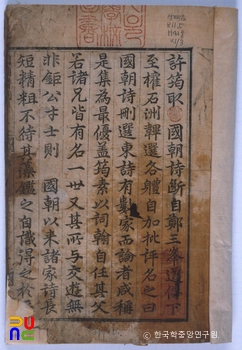 許筠取 國朝詩斷自鄭三峯道傳下
至權石洲韠選各體自加批評名之曰
國朝詩刪選東詩有數家而論者咸稱
是集為最優盖筠素以詞翰自任其父
若諸兄皆有名一世又其所與交遊無
非鉅公才士則 國朝以來諸家詩長
短精粗不待其藻鑑之自識得之於
ⓒ 한국학중앙연구원